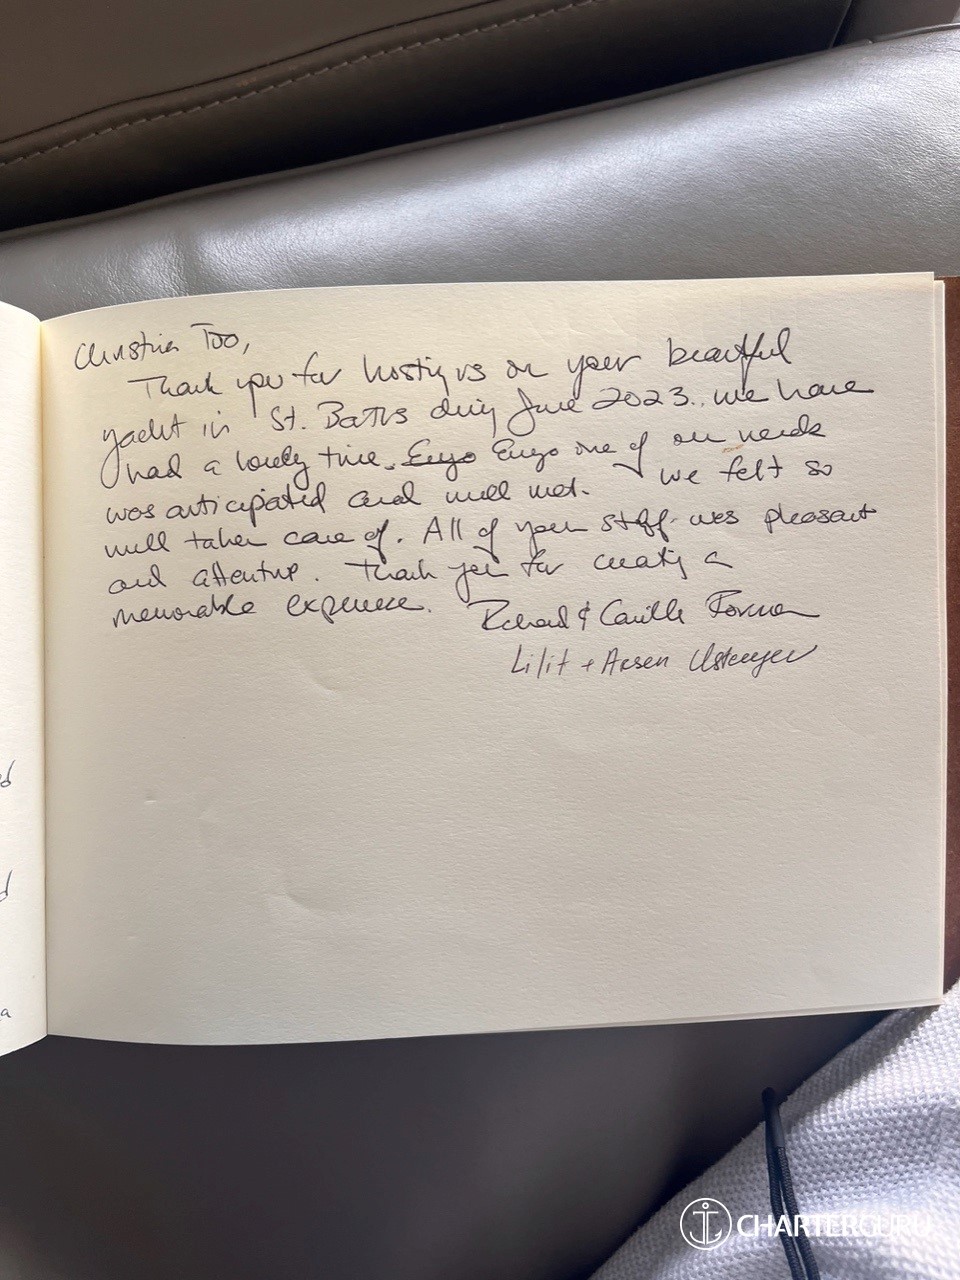 Christina Too,
Thank you for hosting us on your beautiful
yacht in St. Barths during June 2023. We have
had a lovely time. one of our needs
was anticipated and well met. We felt so
well taken care of. All of your staff was pleasant
and attentive. Thank you for creating a
memorable experience. Richard & Camille
Lilit + Arsen
CHARTERGURU